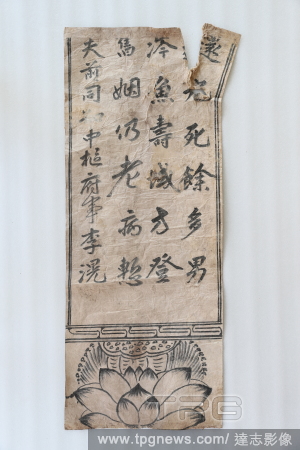 還死餘多男
魚壽域方登
姻仍老病
夫前同中樞府事李滉
TPG
www.tpgnews.com/ 達志影像